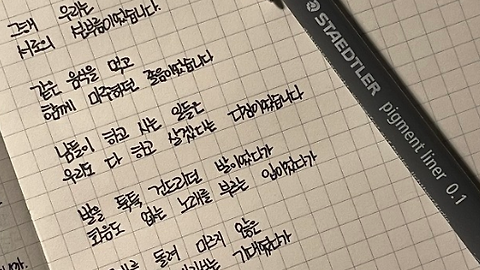 그때 우리는
서로의 심부름이었습니다.
같은 음식을 먹고
함께 마주하던 졸음이었습니다
남들이 하고 사는 일들은
우리도 다 하고 살겠다는 다짐이었습니다
발을 툭툭 건드리던 발이었다가
화음도 없는 노래를 부르는 입이었다가
돌려 마르지 않은
기대였다가
STAEDTLER
pigment liner 0.1